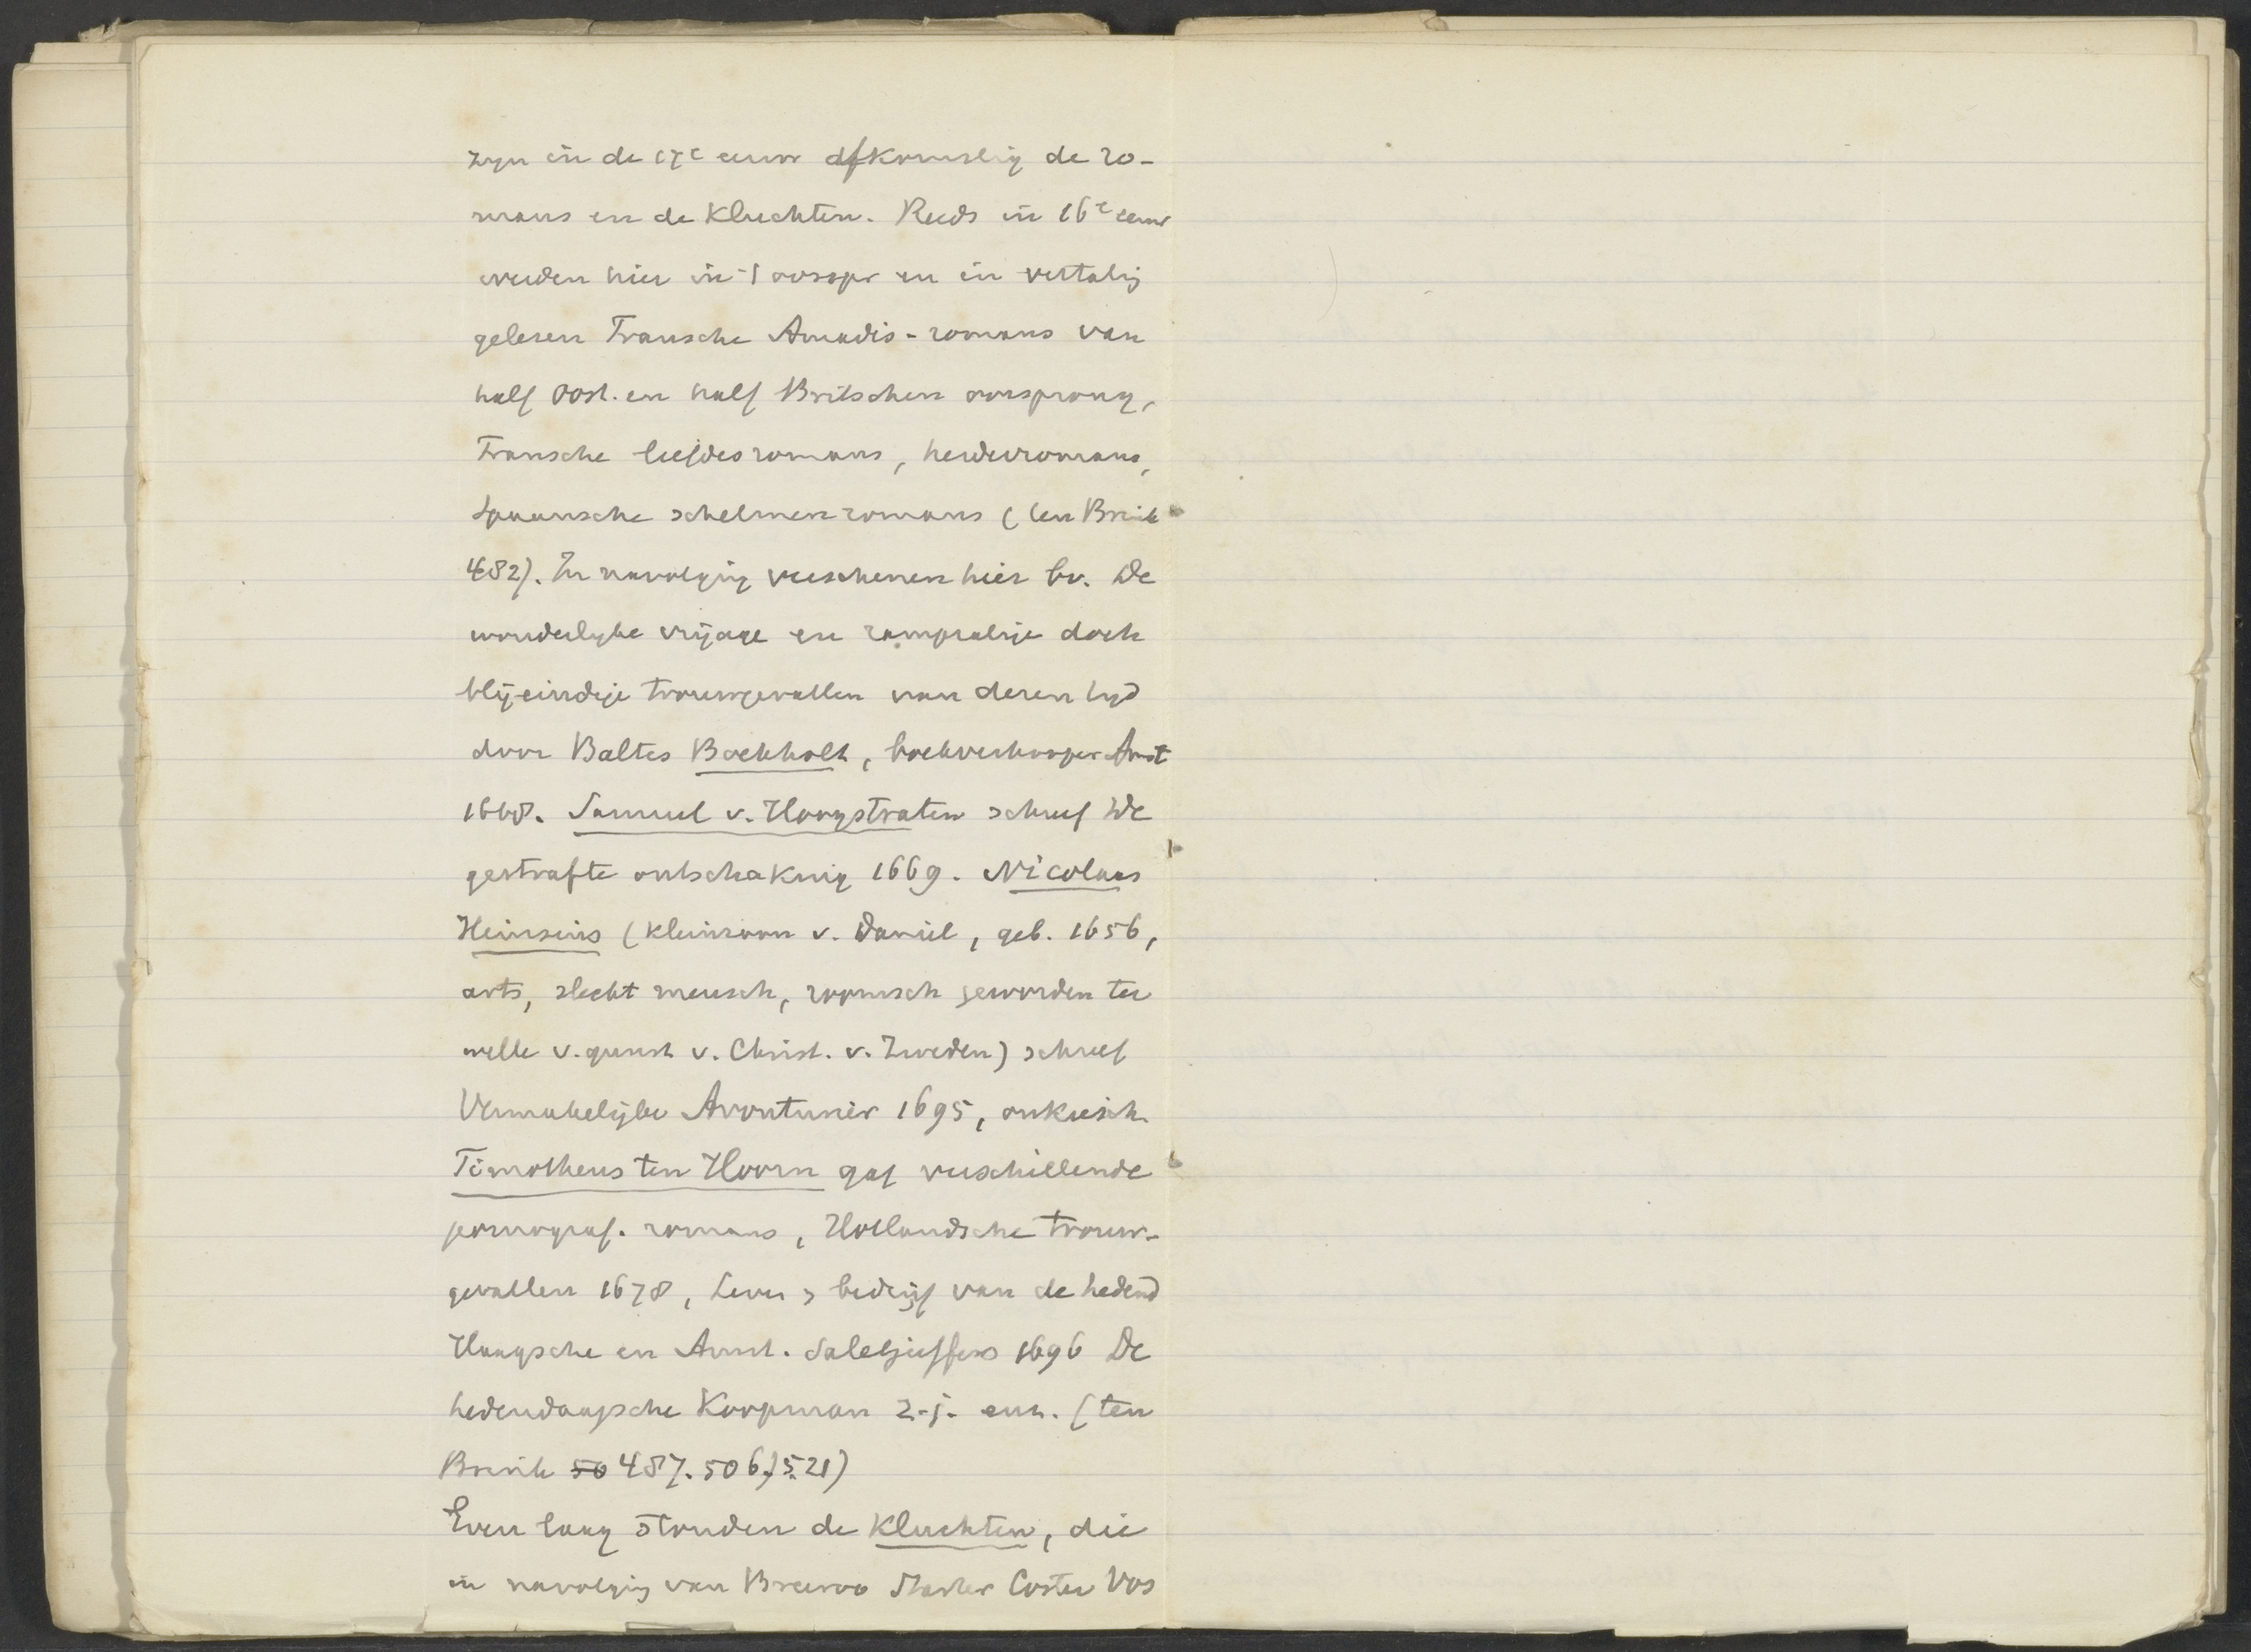 zyn in de 17e eeuw afkomstig de ro-
mans en de Kluchten. Reeds in 16e eeuw
werden hier in 't oorspr en in vertalig
gelesen Fransche Amadis-romans van
half Oost. en half Britschen oorsprong,
Fransche liefdesromans, herderromans,
Spaansche schelmenromans (ten Brink
482). In navolging verschenen hier bv. De
wonderlyke vrijage en rampzalige doch
blij-eindige trouwgevallen van dezen tyd
door Baltes Boekholt, boekverkooper Amst
1668. Samuel v. Hoogstraten schreef De
gestrafte ontschaking 1669. Nicolaas
Heinsius (kleinzoon v. Daniel, geb. 1656,
arts, slecht mensch, roomsch geworden ter
wille v. gunst v. Christ. v. Zweden) schreef
Vermakelijke Avonturier 1695, onkuisch.
Timotheus ten Hoorn gaf verschillende
pornograf. romans, Hollandsche trouw-
gevallen 1678, Leven & bedrijf van de hedend
Haagsche en Amst. Saletjuffers 1696 De
hedendaagsche Koopman z.j. enz. (ten
Brink 50 487. 506, 521)
Even laag stonden de Kluchten, die
in navolging van Breeroo Starter Coster Vos